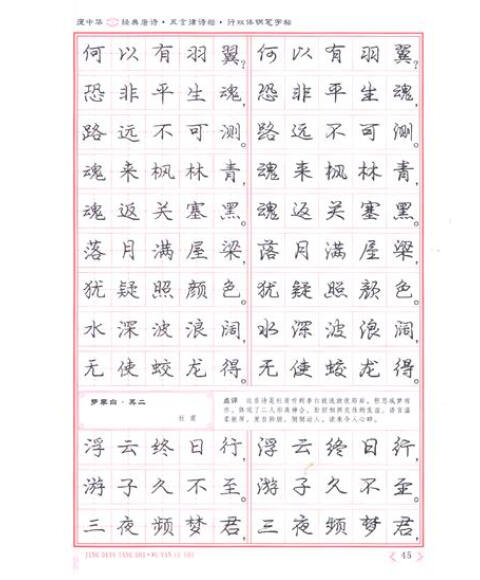 庞中华 经典唐诗·五言律诗卷·行双体钢笔字帖
何以有羽翼？ 何以有羽翼？
恐非平生魂， 恐非平生魂，
路远不可测。 路远不可测。
魂来枫林青， 魂来枫林青，
魂返关塞黑。 魂返关塞黑。
落月满屋梁， 落月满屋梁，
犹疑照颜色。 犹疑照颜色。
水深波浪阔， 水深波浪阔，
无使蛟龙得。 无使蛟龙得。
梦李白·其二
杜甫
浮云终日行， 浮云终日行，
游子久不至。 游子久不至。
三夜频梦君， 三夜频梦君，
45